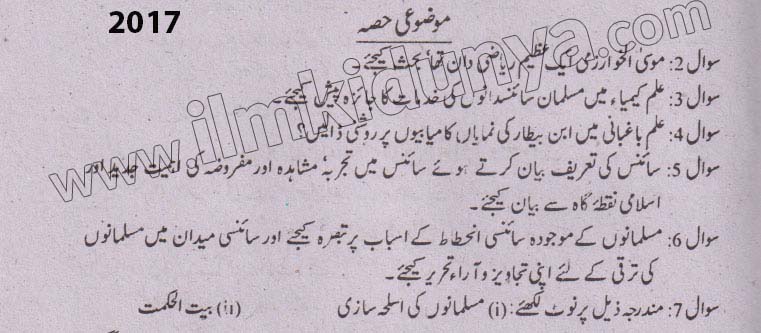 2017
موضوعی حصہ
سوال 2: موسیٰ الخوارزمی ایک عظیم ریاضی دان تھا، بحث کیجئے۔
سوال 3: علم کیمیاء میں مسلمان سائنسدانوں کی خدمات کا جائزہ پیش کیجئے۔
سوال 4: علم باغبانی میں ابن بیطار کی نمایاں کامیابیوں پر روشنی ڈالیں؟
سوال 5: سائنس کی تعریف بیان کرتے ہوئے سائنس میں تجربہ، مشاہدہ اور مفروضہ کی اہمیت جدید اور
اسلامی نقطۂ گاہ سے بیان کیجئے۔
سوال 6: مسلمانوں کے موجودہ سائنسی انحطاط کے اسباب پر تبصرہ کیجئے اور سائنسی میدان میں مسلمانوں
کی ترقی کے لئے اپنی تجاویز و آراء تحریر کیجئے۔
سوال 7: مندرجہ ذیل پر نوٹ لکھئے: (i) مسلمانوں کی اسلحہ سازی (ii) بیت الحکمت
www.ilmkidunya.com